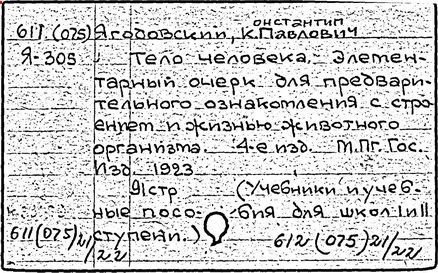 онстантин
611 (075) Ягодовский, К.Павлович
Я-305 Тело человека, Элемен-
тарный очерк для предвари-
тельного ознакомления с стро
ением и жизнью животного
организма. 4-е изд. М.Пг. Гос.
Изд. 1923
91стр (Учебники и учеб-
ные посо- бия для школ I и II
611(075)21/22 ступени.) 612 (075)21/22